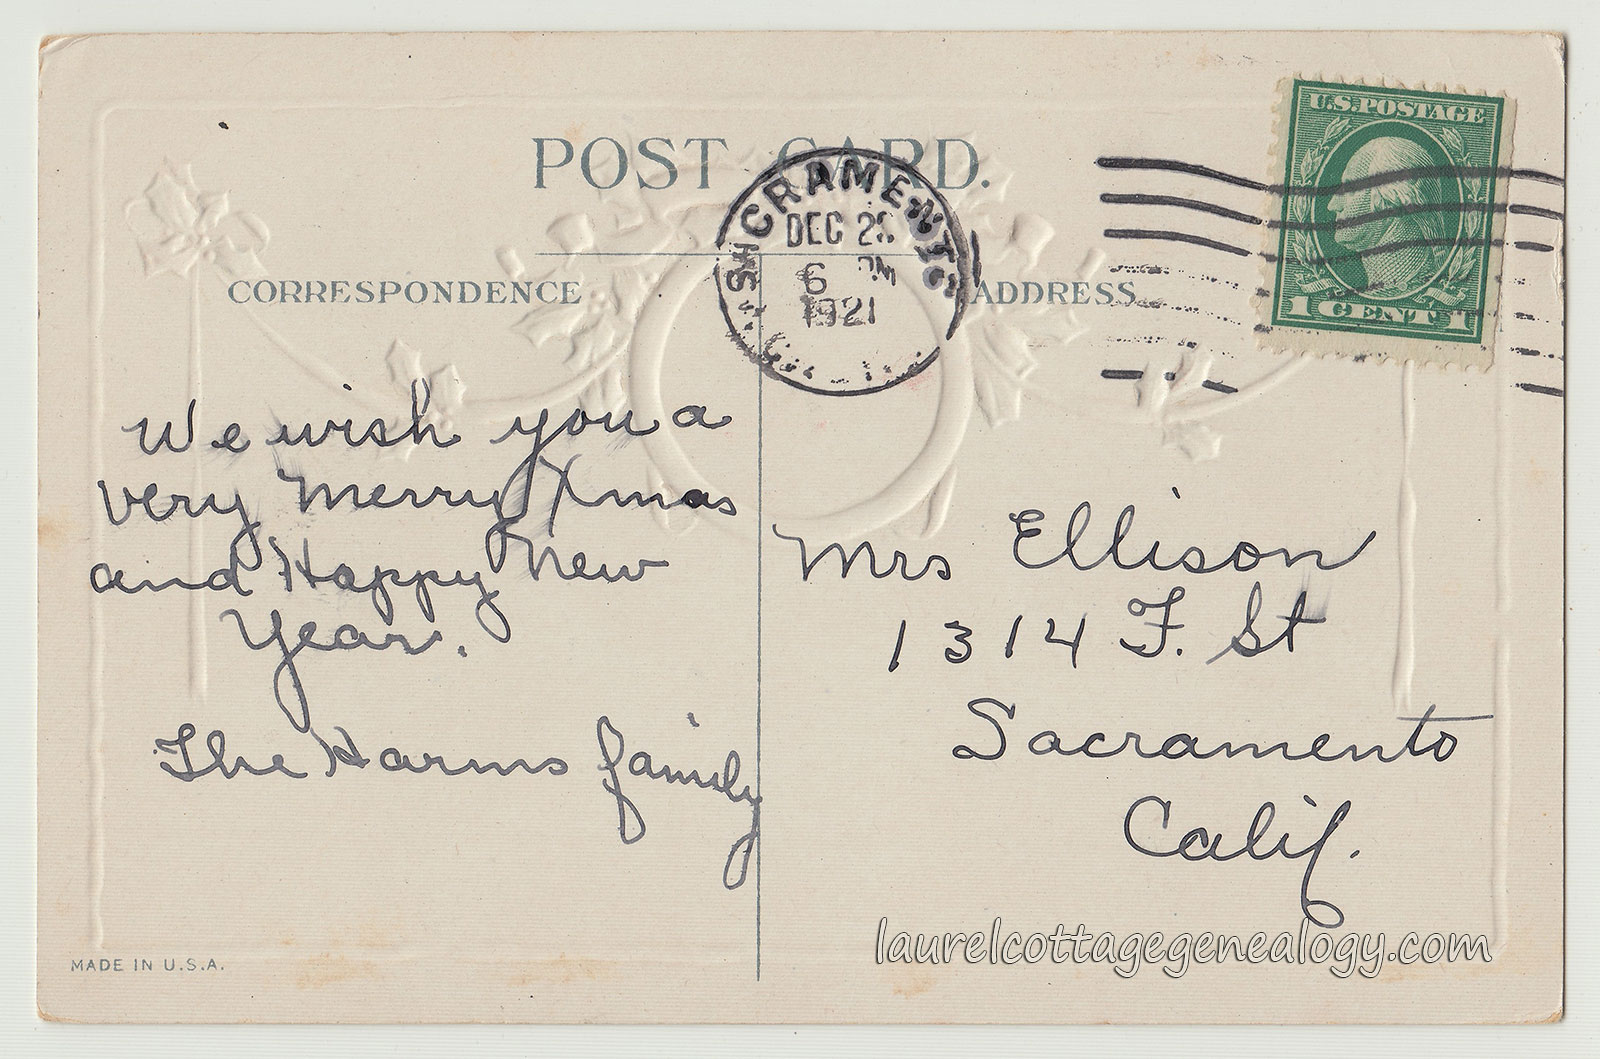 POST CARD.
SACRAMENTO
DEC 2
6 PM
1921
U.S. POSTAGE
1 CENT 1
CORRESPONDENCE
ADDRESS
We wish you a
very Merry Xmas
and Happy New
Year.
The Harms family
Mrs Ellison
1314 F. St
Sacramento
Calif.
MADE IN U.S.A.
laurelcottagegenealogy.com